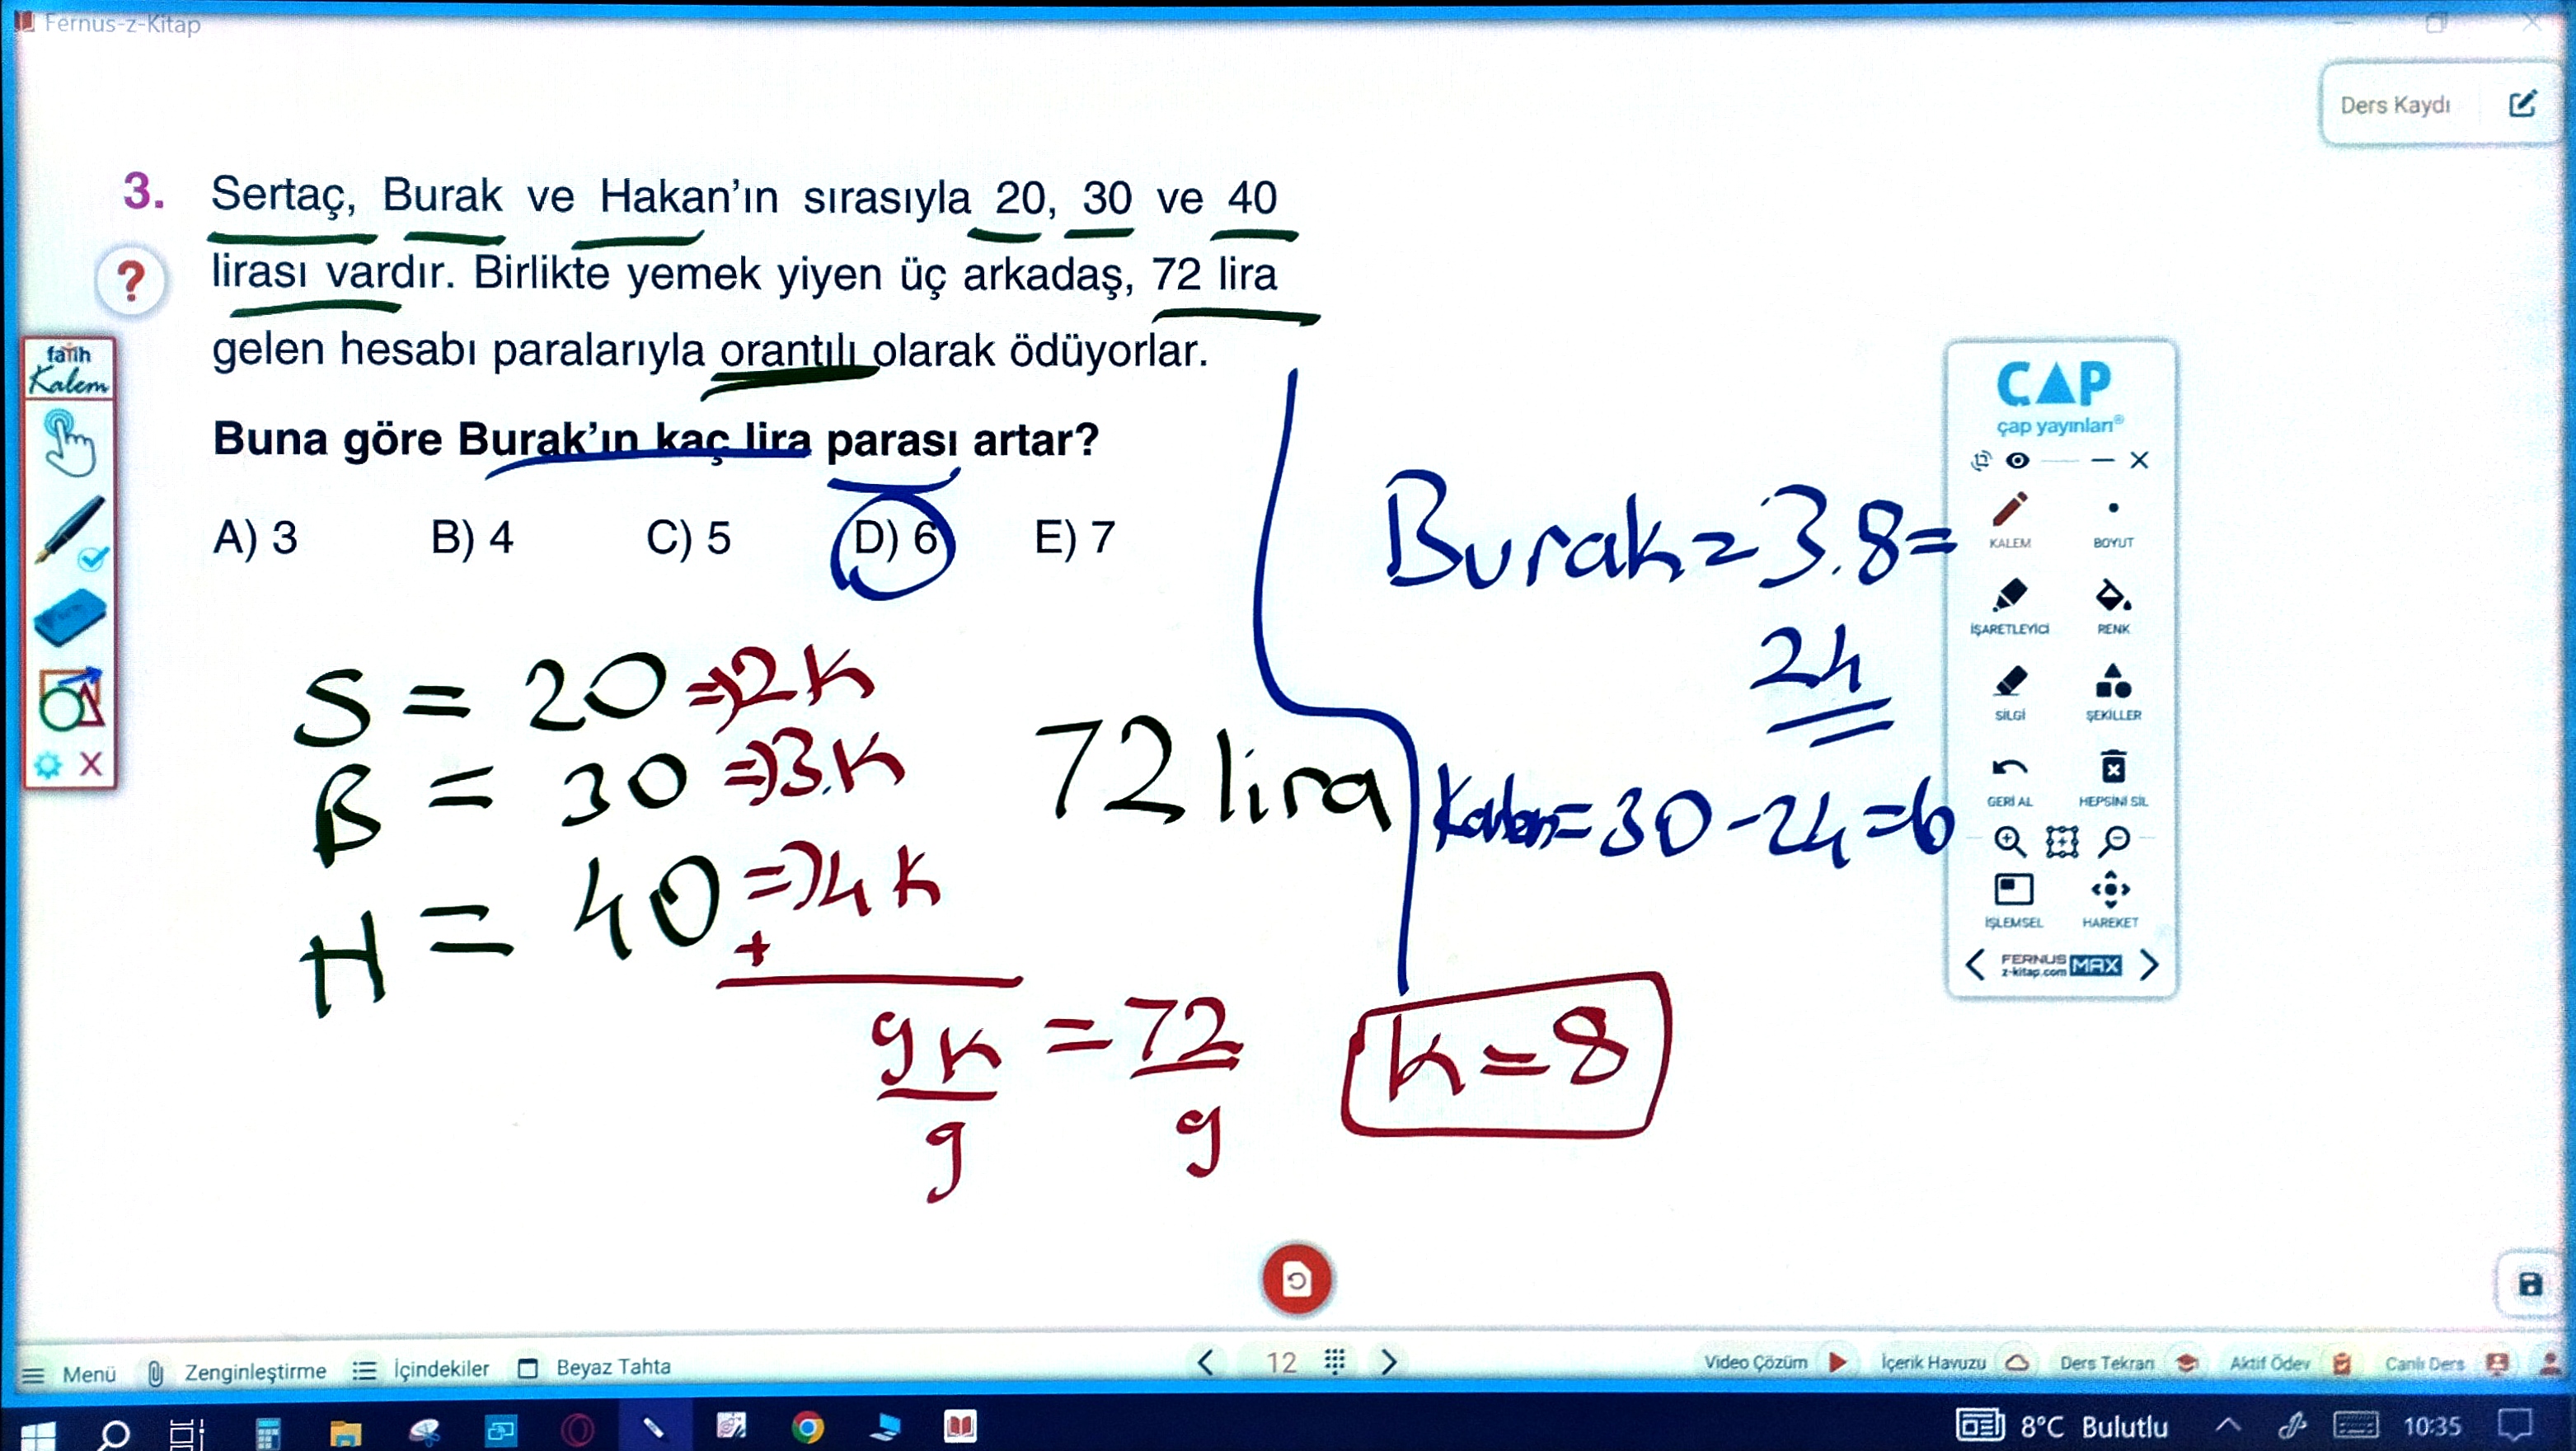 Fernus-z-Kitap
Ders Kaydı
3. Sertaç, Burak ve Hakan'ın sırasıyla 20, 30 ve 40
lirası vardır. Birlikte yemek yiyen üç arkadaş, 72 lira
gelen hesabı paralarıyla orantılı olarak ödüyorlar.
Buna göre Burak'ın kaç lira parası artar?
A) 3 B) 4 C) 5 D) 6 E) 7
?
fatih
Kalem
S = 20 ⇒ 2K
B = 30 ⇒ 3.K
H = 40 ⇒ 4K
+
9K = 72
9 9
K = 8
72 lira
Burak = 3.8 =
24
Kalan = 30 - 24 = 6
ÇAP
çap yayınları®
KALEM BOYUT
İŞARETLEYİCİ RENK
SİLGİ ŞEKİLLER
GERİ AL HEPSİNİ SİL
İŞLEMSEL HAREKET
FERNUS
z-kitap.com MAX
Menü Zenginleştirme İçindekiler Beyaz Tahta 12 Video Çözüm İçerik Havuzu Ders Tekrarı Aktif Ödev Canlı Ders
8°C Bulutlu 10:35